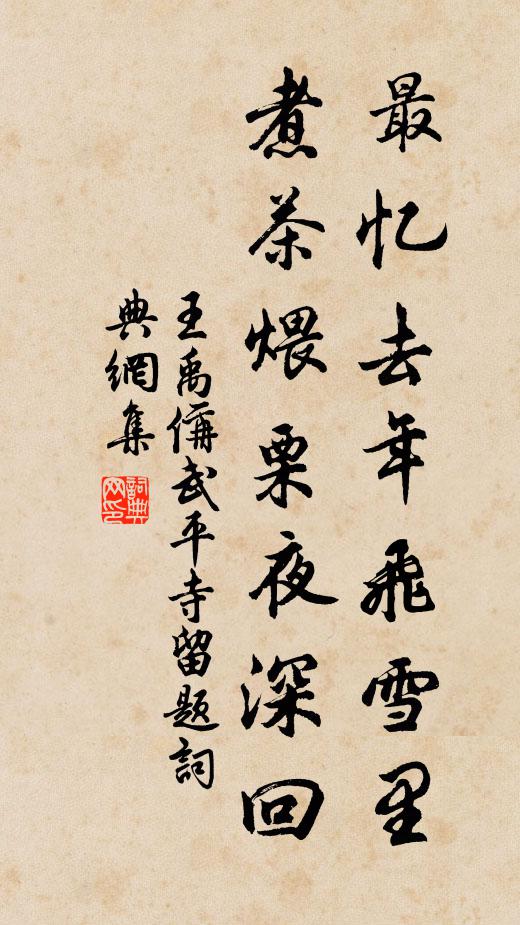 最忆去年飛雪里
煮茶煨栗夜深回
王禹偁武平寺留题詞
典網集
詞典网印